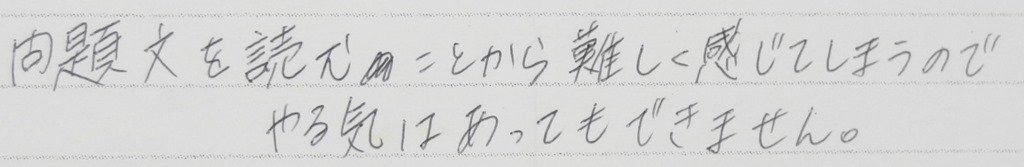 問題文を読むことから難しく感じてしまうので
やる気はあってもできません。